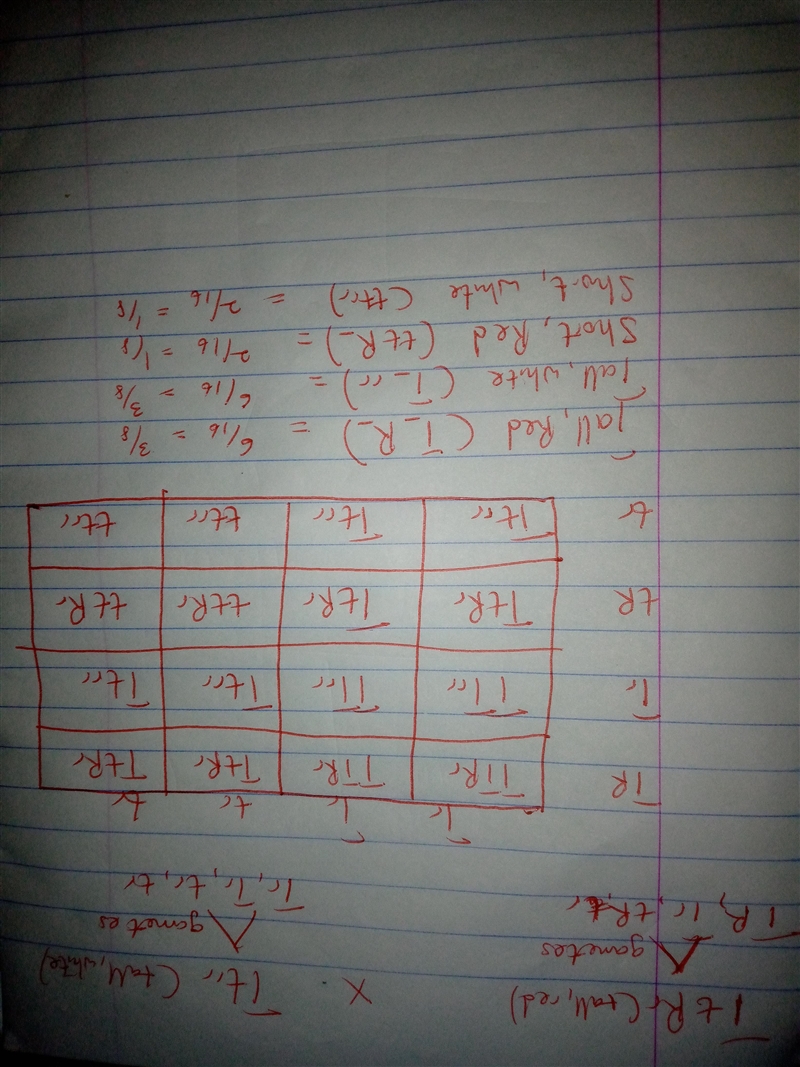 TtRr (tall, red) X Ttrr (tall, white)
gametes gametes
TR, Tr, tR, tr Tr, Tr, tr, tr
Tr Tr tr tr
TR TTRr TTRr TtRr TtRr
Tr TTrr TTrr Ttrr Ttrr
tR TtRr TtRr ttRr ttRr
tr Ttrr Ttrr ttrr ttrr
Tall, Red (T_R_) = 6/16 = 3/8
Tall, white (T_rr) = 6/16 = 3/8
Short, Red (ttR_) = 2/16 = 1/8
Short, white (ttrr) = 2/16 = 1/8